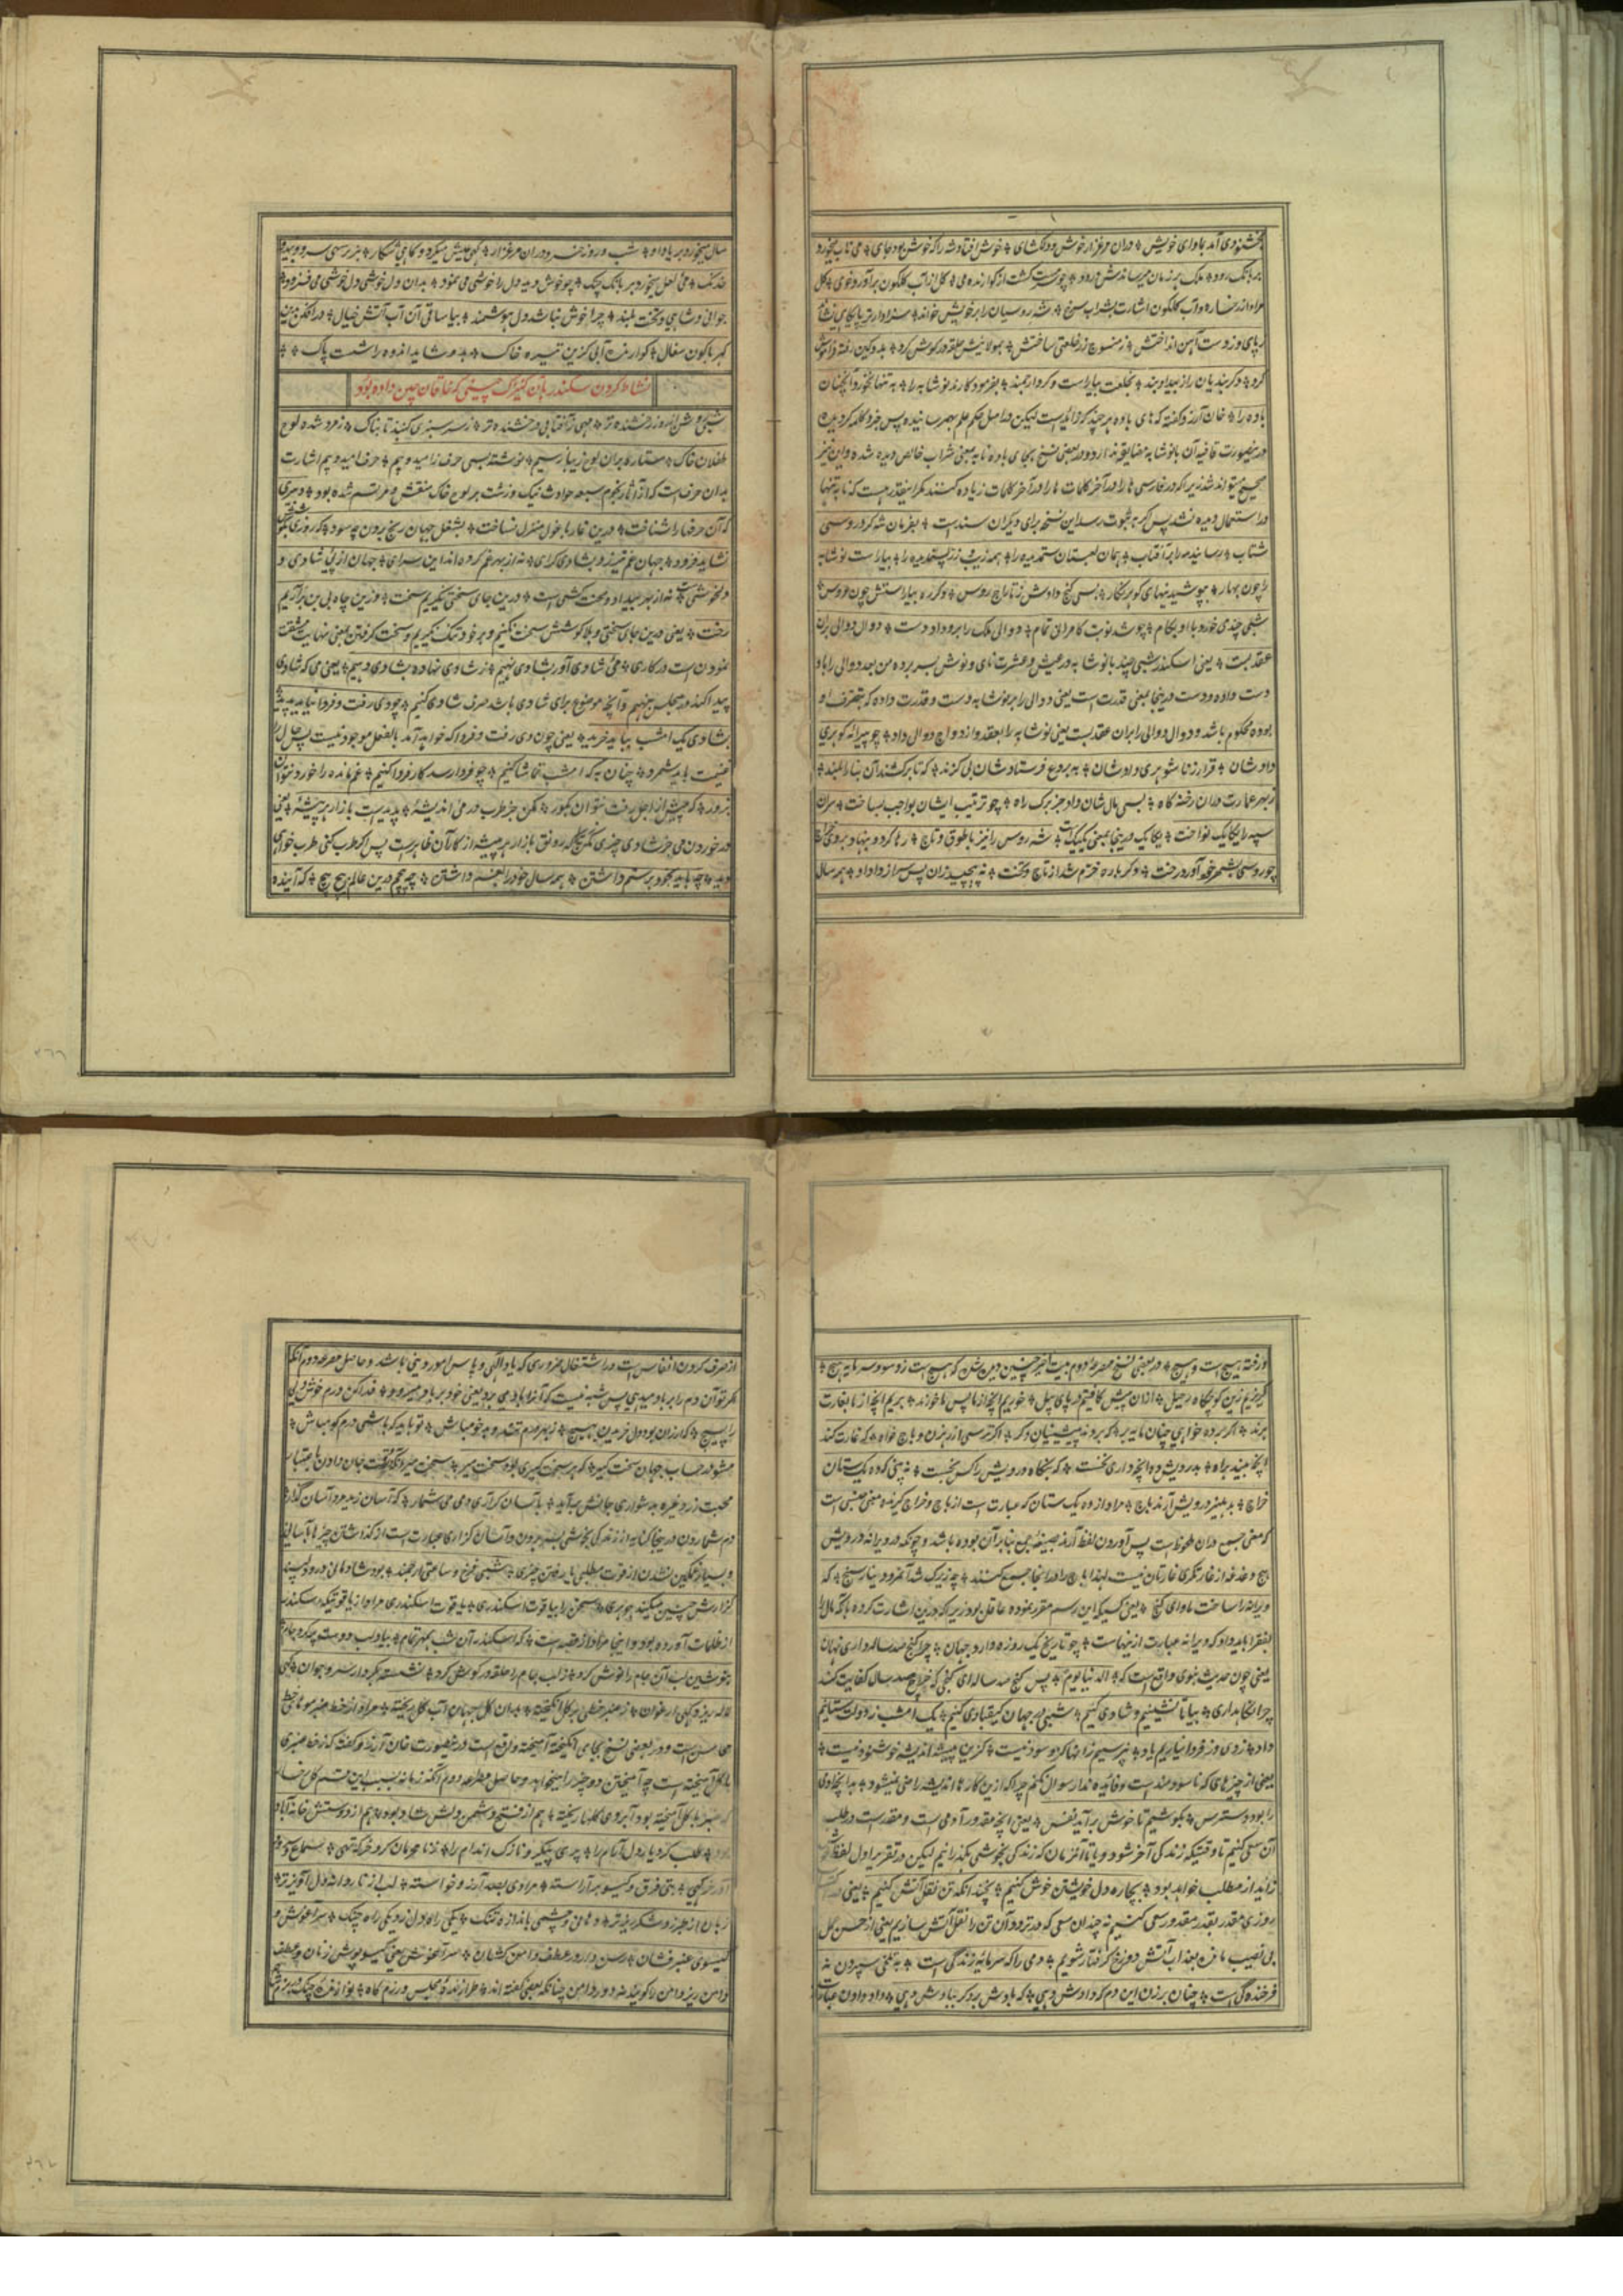 بخشنودی آمد بماوای خویش ❖ دران مرغزار خوش و دلکشای ❖ خوش افتاد شه را که خوش بود جای ❖ می ناب میخورد
بر بانگ رود ❖ فلک هر زمان میرساندش درود ❖ چو سرمست گشت از گوارنده می ❖ گل از آب گلگون برآورد خوی ❖ گل
مراد از رخساره و آب گلگون اشارت بشراب سرخ ❖ شه روسیان را بر خویش خواند ❖ سزاوارتر پایگاهی نشاند
ز پای و ز دست آهن انداختش ❖ ز منسوج زر خلعتی ساختش ❖ بمولائیش حلقه در گوش کرد ❖ بدو کین رفته فراموش
کرد ❖ دگر بندیان را ز بیداد بند ❖ بخلعت بیاراست و کرد ارجمند ❖ بفرمود کارند نوشابه را ❖ به تنها نخورد آنچنان
باده را ❖ خان آرزو گفته که های باده هر چند که زائد است لیکن در اصل حکم علم بهم رسانیده پس جزو کلمه گردیده
درینصورت قافیه آن بانوشابه مضایقه ندارد و در بعضی نسخ بجای باده نابه بمعنی شراب خالص دیده شده و این نیز
صحیح میتواند شد زیرا که در فارسی ها را در آخر کلمات ها را در آخر کلمات زیاده کنند مگر اینقدر هست که نابه تنها
در استعمال دیده نشد پس اگر به ثبوت رسد این نسخه برای دیگران سند است ❖ بفرمان شه گرد روسی
شتاب ❖ رسانید مه را بر آفتاب ❖ همان لعبتان ستمدیده را ❖ همه زیب و زر پسندیده را ❖ بیاراست نوشابه
را چون بهار ❖ بپوشیدنیهای گوهرنگار ❖ بسی گنج دادش ز تاراج روس ❖ دگر ره بیاراستش چون عروس ❖
شبی چندی خورد با او بکام ❖ چو شد نوبت کامرانی تمام ❖ دوالی ملک را برو داد دست ❖ دوال دوالی بران
عقد بست ❖ یعنی اسکندر شبی چند بانوشابه در عیش و عشرت نای و نوش بسر برده من بعد دوالی را با او
دست داده و دست درینجا بمعنی قدرت است یعنی دوالی را بر نوشابه دست و قدرت داده که بتصرف او
بوده محکوم باشد و دوال دوالی را بران عقد بست یعنی نوشابه را بعقد و ازدواج دوالی داد ❖ چو پیرایه گوهری
دادشان ❖ قرار زناشوهری دادشان ❖ به بروع فرستادشان بی گزند ❖ که تا برکشند آن بنا را بلند ❖
ز بهر عمارت دران رخنه گاه ❖ بسی مال شان داد جز برگ راه ❖ چو ترتیب ایشان بواجب بساخت ❖ سران
سپه را یکایک نواخت ❖ یکایک درینجا بمعنی یک یک است ❖ شه روس را نیز با طوق و تاج ❖ رها کرد و بنهاد بر وی خراج
چو روسی بشهر خود آورد رخت ❖ دگر باره خرم شد از تاج و تخت ❖ نه پیچید زان پس سر از داد او ❖ همه سال
سال میخورد بر یاد او ❖ شب و روز خسرو دران مرغزار ❖ گهی عیش میکرد و گاهی شکار ❖ بزیر سهی سرو و بید و
خدنگ ❖ می لعل میخورد بر بانگ چنگ ❖ چو خوش دید دل را خوشی می نمود ❖ بدان دل خوشی دل خوشی می فزود ❖
جوانی و شاهی و بخت بلند ❖ چرا خوش نباشد دل هوشمند ❖ بیا ساقی آن آب آتش خیال ❖ درافکن بدین
کهرباگون سفال ❖ گوارنده آبی کزین تیره خاک ❖ بدو شاید اندوه را شست پاک ❖ ❖
نشاط کردن سکندر بان کنیزک چینی که خاقان چین داده بود
شبی روشن از روز رخشنده تر ❖ مهی ز آفتابی درخشنده تر ❖ ز سرسبزی گنبد تابناک ❖ زمرد شده لوح
طفلان خاک ❖ ستاره بران لوح زیبا ز سیم ❖ نوشته بسی حرف ز امید و بیم ❖ حرف امید و بیم اشارت
بدان حرف است که از آثار نجوم سبعه حوادث نیک و زشت بر لوح خاک منقش و مرتسم شده بود ❖ دبیری
که آن حرفها را شناخت ❖ درین غار با غول منزل نساخت ❖ بشغل جهان رنج بردن چه سود ❖ که روزی بکوشش
نشاید فزود ❖ جهان غم نیرزد بشادی گرای ❖ نه از بهر غم کرده اند این سرای ❖ جهان از پی شادی و
دلخوشی است ❖ نه از بهر بیداد و محنت کشی است ❖ درین جای سختی نگیریم سخت ❖ وزین چاه بی بن برآریم
رخت ❖ یعنی درین جای سختی و بلا کوشش سخت نکنیم و بر خود تنگ نگیریم و سخت گرفتن بمعنی نهایت مشقت
نمودن است در کاری ❖ می شادی آور بشادی نهیم ❖ ز شادی نهاده بشادی دهیم ❖ یعنی می که شادی
پیدا کند در مجلس نهیم و آنچه موضوع برای شادی باشد صرف شادی کنیم ❖ چو دی رفت و فردا نیامد پدید
بشادی یک امشب بباید خرید ❖ یعنی چون دی رفت و فردا که خواهد آمد بالفعل موجود نیست پس حال را
غنیمت باید شمرد ❖ چنان به که امشب تماشا کنیم ❖ چو فردا رسد کار فردا کنیم ❖ غم نامده را خورد نتوان
بزور ❖ که پیش از اجل رفت نتوان بگور ❖ مکن جز طرب در می اندیشهٔ ❖ پدید است بازار هر پیشهٔ ❖ یعنی
در خوردن می جز شادی چیزی مکن چراکه رونق بازار هر پیشه از کار آن ظاهر است پس اگر طرب کنی طرب خواهی
دید ❖ چه باید بخود بر ستم داشتن ❖ همه سال خود را بغم داشتن ❖ چه پیچیم درین عالم پیچ پیچ ❖ که آینده
و رفته هیچ است و هیچ ❖ در بعضی نسخ مصرعه دوم بیت اخیر چنین دیده شد که هیچ است زو سود و سرمایه هیچ ❖
گریزیم زین کوچگاه رحیل ❖ ازان پیش کافتیم در پای پیل ❖ خوریم آنچه از ما پس ما خورند ❖ بریم آنچه از ما بغارت
برند ❖ اگر برده خواهی چنان مایه بر ❖ که بردند پیشینیان دگر ❖ اگر ترسی از رهزن و باج خواه ❖ که غارت کند
آنچه بیند براه ❖ بدرویش ده آنچه داری نخست ❖ که بنگاه درویش را کس نجست ❖ نه بینی که ده یک ستان
خراج ❖ بدهلیز درویش آرند باج ❖ مراد از ده یک ستان که عبارت است از باج و خراج گیرنده معنی جنسی است
که معنی جمع دران ملحوظ است پس آوردن لفظ آرند بصیغه جمع بنابر آن بوده باشد و چونکه در ویرانه درویش
هیچ دغدغه از غارتگری غارتگران نیست لهذا باج را در آنجا جمع کنند ❖ چه زیرک شد آنمرد دینار سنج ❖ که
ویرانه را ساخت ماوای گنج ❖ یعنی کسیکه این رسم مقرر نموده عاقل بود زیرا که درین اشارت کرده باآنکه مال را
بفقرا باید داد که ویرانه عبارت از ینهاست ❖ چو تاریخ یک روزه دارد جهان ❖ چرا گنج صد ساله داری نهان
یعنی چون حدیث نبوی واقع است که ❖ الدنیا یوم ❖ پس گنج صد ساله ای گنجی که خراج صد سال کفایت کند
چرا نگاهداری ❖ بیا تا نشینیم و شادی کنیم ❖ شبی در جهان کیقبادی کنیم ❖ یک امشب ز دولت ستانیم
داد ❖ ز دی و ز فردا نیاریم یاد ❖ نپرسیم زانها کزو سود نیست ❖ کزین پیشه اندیشه خوشنود نیست ❖
یعنی از چیزهای که ناسودمند است و فائده ندارد سوال نکنم چرا که ازین کارها اندیشه راضی نمیشود ❖ بدانچه آدمی
را بود دسترس ❖ بکوشیم تا خوش برآید نفس ❖ یعنی آنچه مقدور آدمی است و مقدر است در طلب
آن سعی کنیم تا وقتیکه زندگی آخر شود و یا تا آنزمان که زندگی بخوشی بگذرانیم لیکن در تقریر اول لفظ خوش
زائد از مطلب خواهد بود ❖ بچاره دل خویشتن خوش کنیم ❖ نچندانکه تن نقل آتش کنیم ❖ یعنی
روزی مقدر بقدر مقدور سعی کنیم نه چندان سعی که در تردد آن تن را نقل آتش سازیم یعنی از حسن کل
بی نصیب مانده بعذاب آتش دوزخ گرفتار شویم ❖ دمی را که سرمایه زندگی است ❖ به تلخی سپردن نه
فرخندگی است ❖ چنان برزن این دم که دادش دهی ❖ که بادش برد گر ببادش دهی ❖ داد دادن عبارت
از صرف کردن انفاس است در اشتغال ضروری که یاد الهی و پاس امور دینی باشد و حاصل مصرعه دوم آنکه
اگر تو آن دم را بر باد میدهی پس شبه نیست که آنرا باد می برد یعنی خود بر باد میرود ❖ فدا کن درم خوش دلی
را بسیچ ❖ که ارزان بود دل خریدن بهیچ ❖ ز بهر درم تند و بدخو مباش ❖ تو باید که باشی درم گو مباش ❖
مشو در حساب جهان سخت گیر ❖ که هر سخت گیری بود سخت میر ❖ سخت میر ... سخت جان دادن یا بجهت
محبت زر و غیره بدشواری جانش برآید ❖ به آسان گذاری دمی می شمار ❖ که آسان زید مرد آسان گذار ❖
دم شمردن درینجا کنایه از زندگی بخوشی بسر بردن و آسان گذاری عبارت است از گذاشتن چیزها بآسانی
و بسیار غمگین نشدن از فوت مطلبی یا رفتن چیزی ❖ شبی فرخ و ساعتی ارجمند ❖ بود شادمانی درو دلپسند
گزارش چنین میکند جوهری ❖ سخن را بیاقوت اسکندری ❖ یاقوت اسکندری مراد از یاقوتیکه اسکندر
از ظلمات آورده بود و اینجا مراد از قصه است ❖ که اسکندر آن شب بمهر تمام ❖ بیاد لب دوست پر کرد جام
بنوشین لب آن جام را نوش کرد ❖ ز لب جام را حلقه در گوش کرد ❖ نشسته بکردار سرو جوان ❖ گهی
لاله ریز و گهی ارغوان ❖ ز عنبر خطی بر گل انگیخته ❖ بران گل جهان آب گل ریخته ❖ مراد از خط عنبر موهای خط
محاسن است و در بعضی نسخ بجای انگیخته آمیخته واقع است در ینصورت خان آرزو گفته که ز خط عنبری
با گل آمیخته است چه آمیختن دو چیز را میخواهد و حاصل مصرعه دوم آنکه زمانه بسبب این قسم گل خسار
که عنبر با گل آمیخته بود آبروی گلها ریخته ❖ هم از فتح دشمن دلش شاد بود ❖ هم از دوستش خانه آباد
بود ❖ طلب کرد یار دل آرام را ❖ پری پیکر نازک اندام را ❖ ز نامحرمان کرد خرگه تهی ❖ سماع و
آورد خرگهی ❖ بتی فرق و گیسو بر آراسته ❖ مرادی بصد آرزو خواسته ❖ لب از نار دانه دل آویزتر ❖
زبان از طبرزد شکر ریز تر ❖ دهانی و چشمی باندازه تنگ ❖ یکی راه دل زد یکی راه چنگ ❖ سر آغوش و
گیسوی عنبر فشان ❖ رسن وار در عطف دامن کشان ❖ سرآغوش یعنی گیسو پوش زنان و عطف
دامن ریز دامن را گویند نه دور دامن چنانکه بعضی گفته اند ❖ طرازنده مجلس و رزم گاه ❖ نوازنده چنگ در بزم